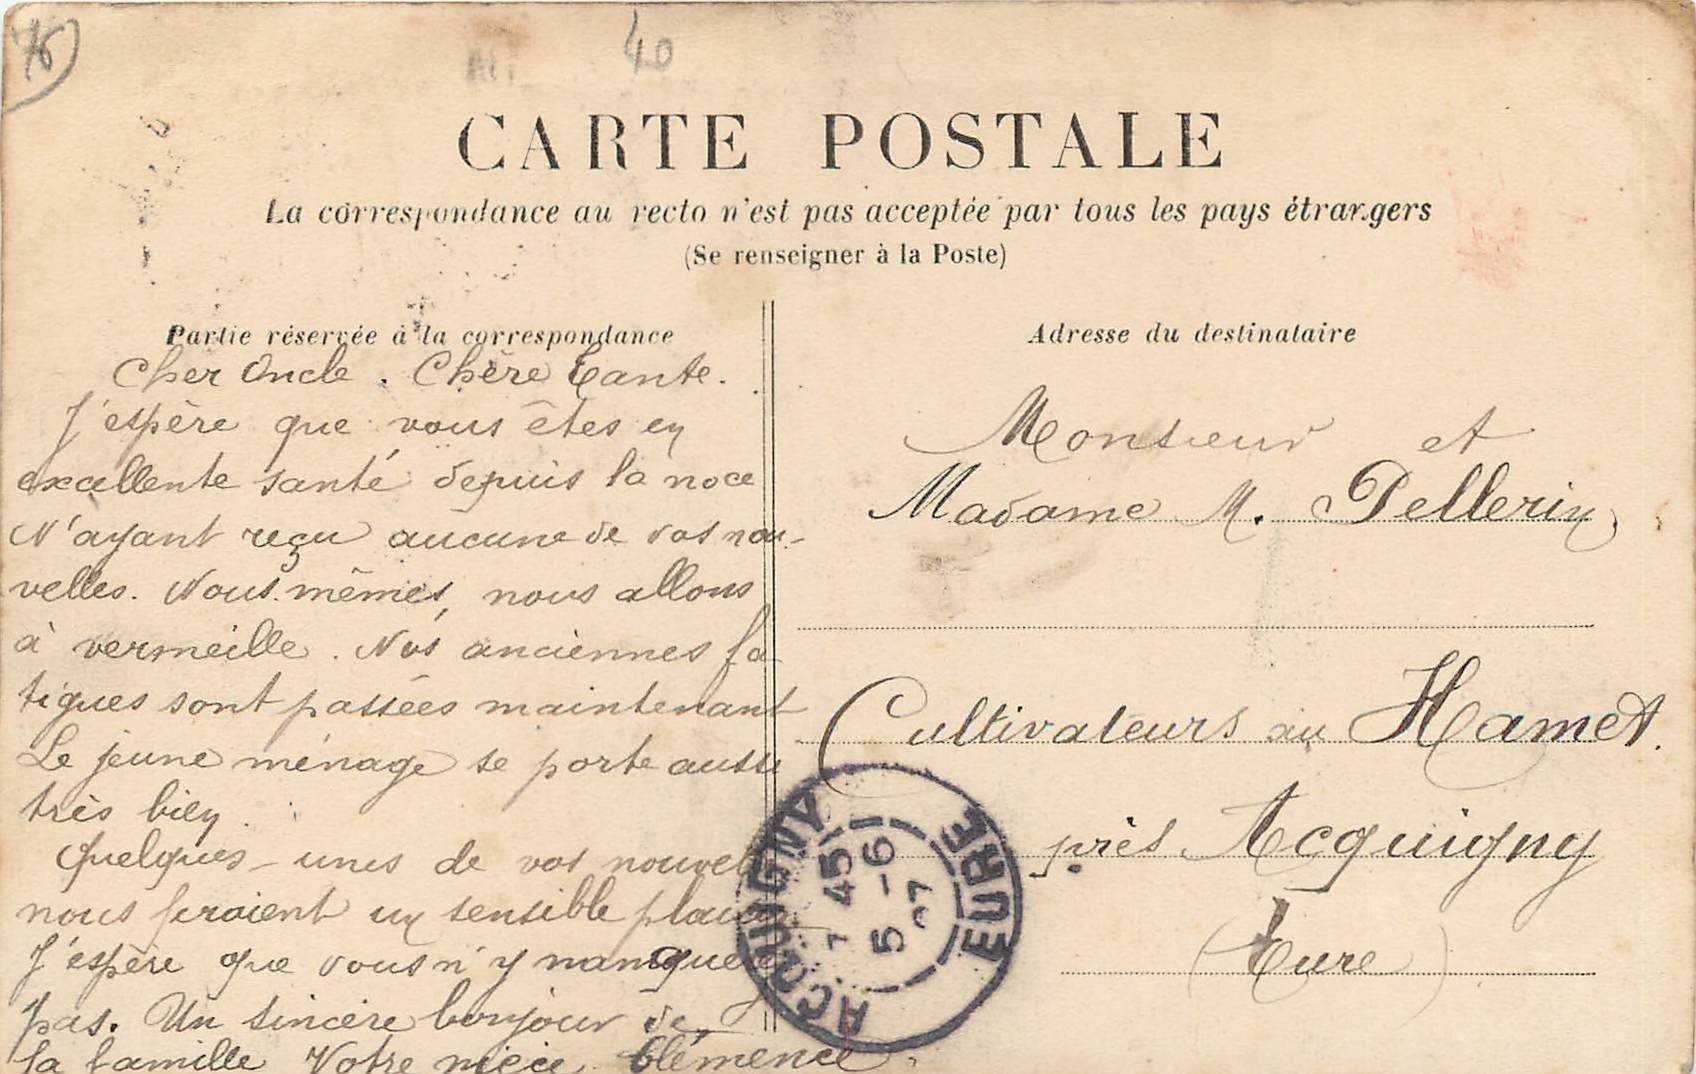 76
40
CARTE POSTALE
La correspondance au recto n'est pas acceptée par tous les pays étrangers
(Se renseigner à la Poste)
Partie réservée à la correspondance
Cher Oncle. Chère Tante.
J'espère que vous êtes en
excellente santé depuis la noce
N'ayant reçu aucune de vos nou-
velles. Nous mêmes, nous allons
à vermeille. Nos anciennes fa
tigues sont passées maintenant
Le jeune ménage se porte aussi
très bien.
Quelques-unes de vos nouvel
nous feraient un sensible plaisir
J'espère que vous n'y manquerez
pas. Un sincère bonjour de
la famille Votre nièce Clémence.
Adresse du destinataire
Monsieur et
Madame M. Pellerin,
Cultivateurs au Hamet.
près Acquigny
(Eure)
ACQUIGNY
7 45
5 -6
07
EURE